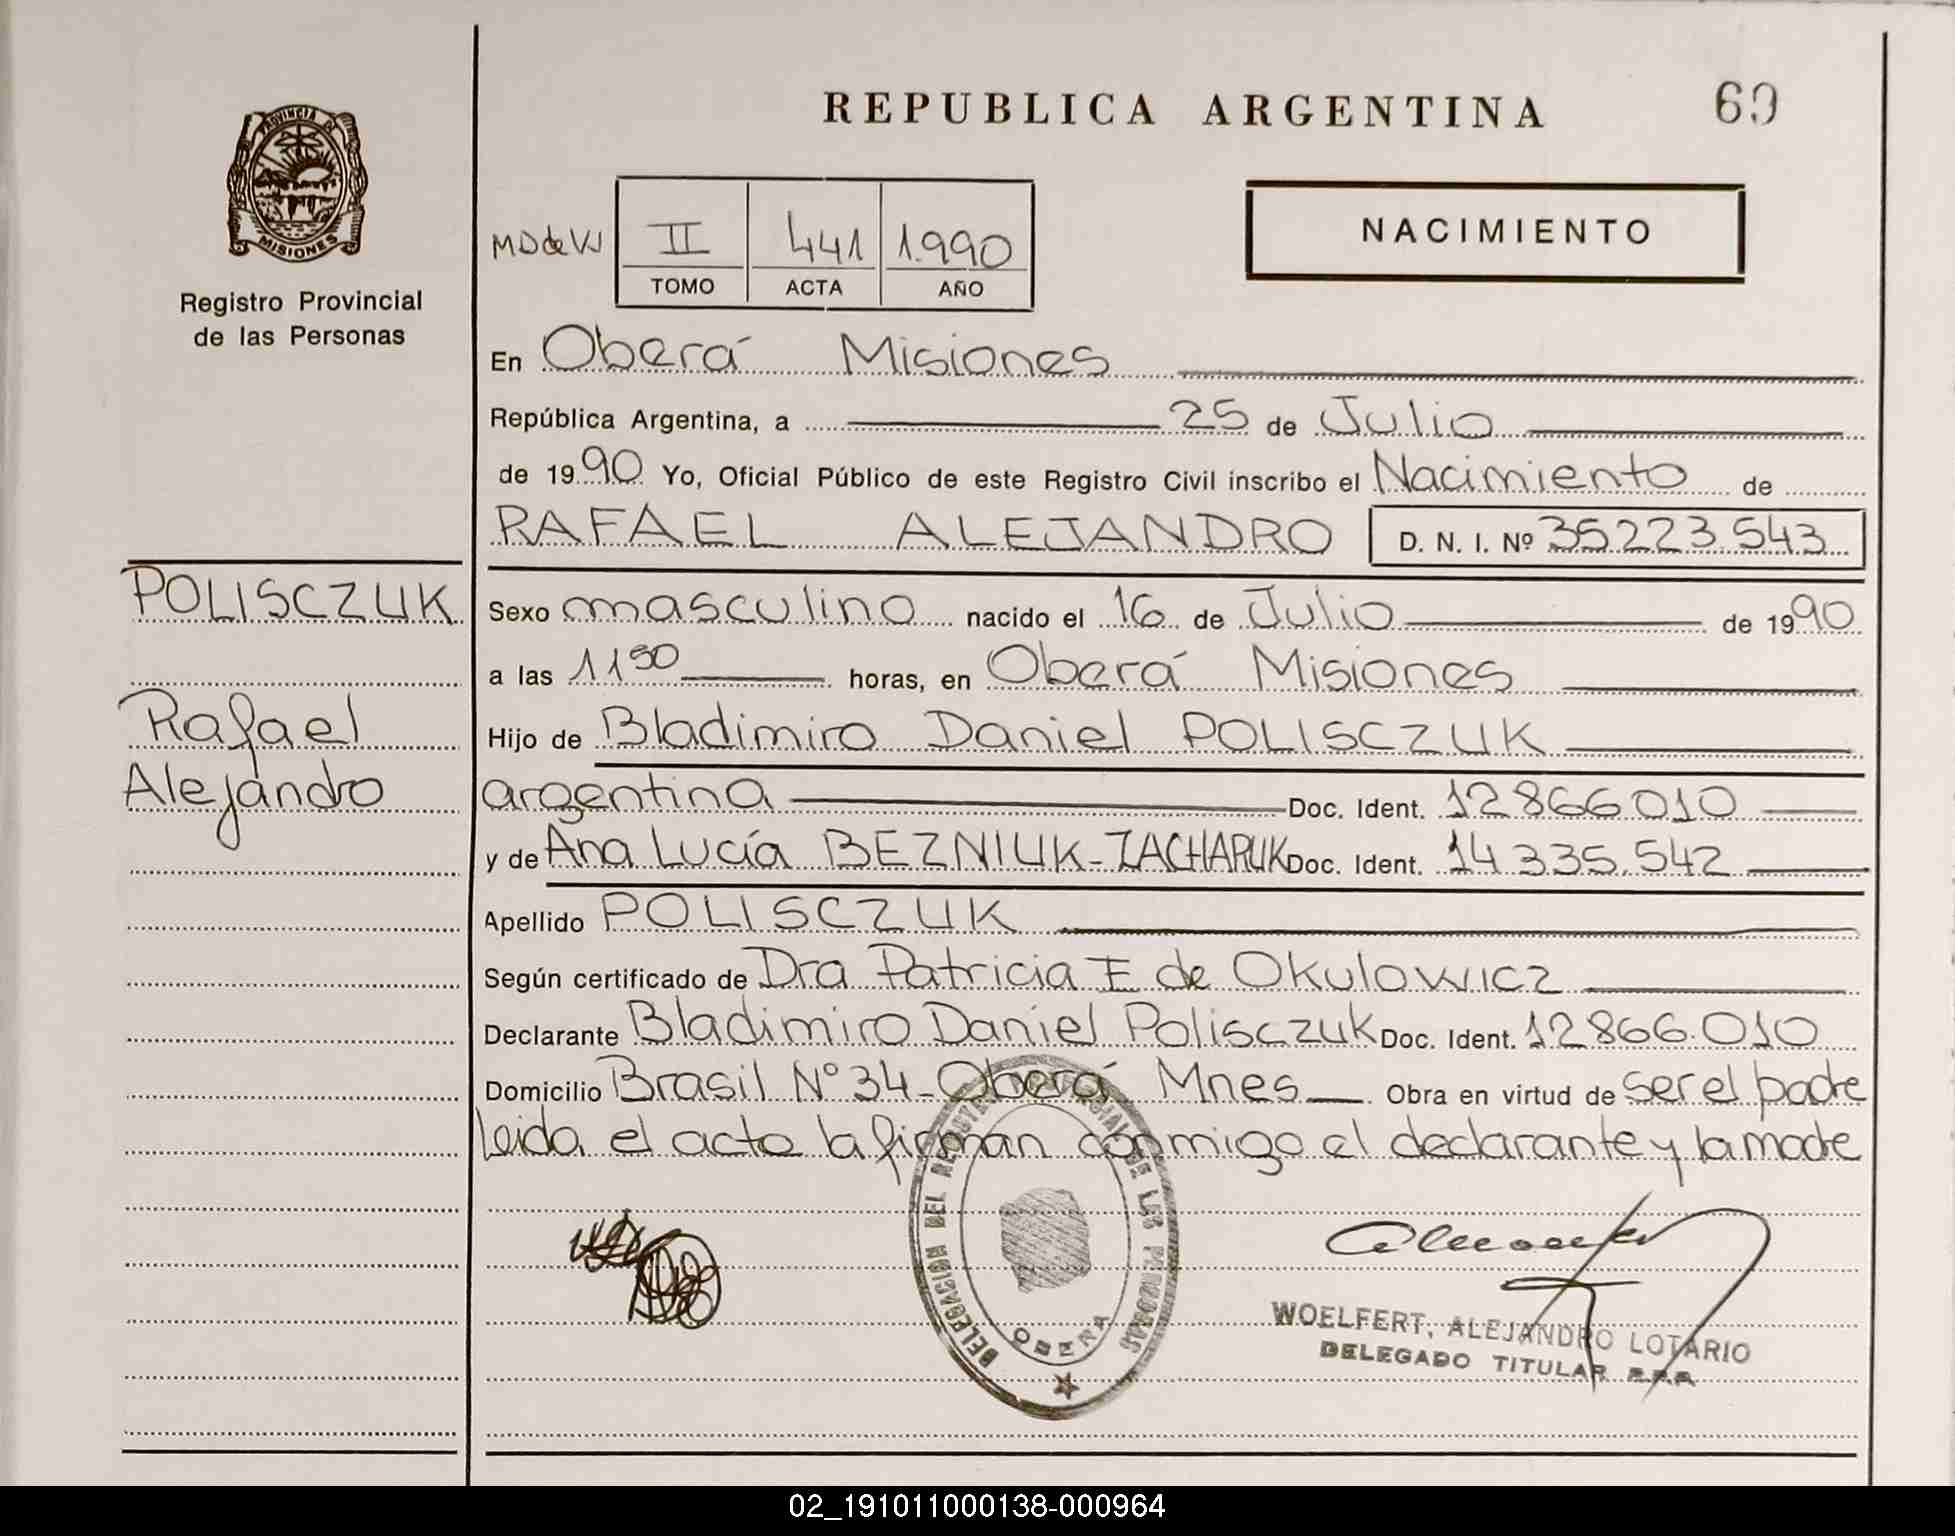 REPUBLICA ARGENTINA
69
PROVINCIA DE
MISIONES
Registro Provincial
de las Personas
II 441 1.990
TOMO ACTA AÑO
NACIMIENTO
En Oberá Misiones
República Argentina, a 25 de Julio
de 1990 Yo, Oficial Público de este Registro Civil inscribo el Nacimiento de
RAFAEL ALEJANDRO D. N. I. Nº 35223.543
POLISCZUK
Rafael
Alejandro
Sexo masculino nacido el 16 de Julio de 1990
a las 11 50 horas, en Oberá Misiones
Hijo de Bladimiro Daniel POLISCZUK
argentina Doc. Ident. 12866.010
y de Ana Lucía BEZNIUK-ZACHARUK Doc. Ident. 14.335.542
Apellido POLISCZUK
Según certificado de Dra Patricia E de Okulowicz
Declarante Bladimiro Daniel Polisczuk Doc. Ident. 12866.010
Domicilio Brasil N° 34-Oberá Mnes Obra en virtud de ser el padre
leida el acta la firman conmigo el declarante y la madre
DELEGACION DEL REGISTRO PROVINCIAL DE LAS PERSONAS
OBERA
WOELFERT, ALEJANDRO LOTARIO
DELEGADO TITULAR R.P.P.
02_191011000138-000964